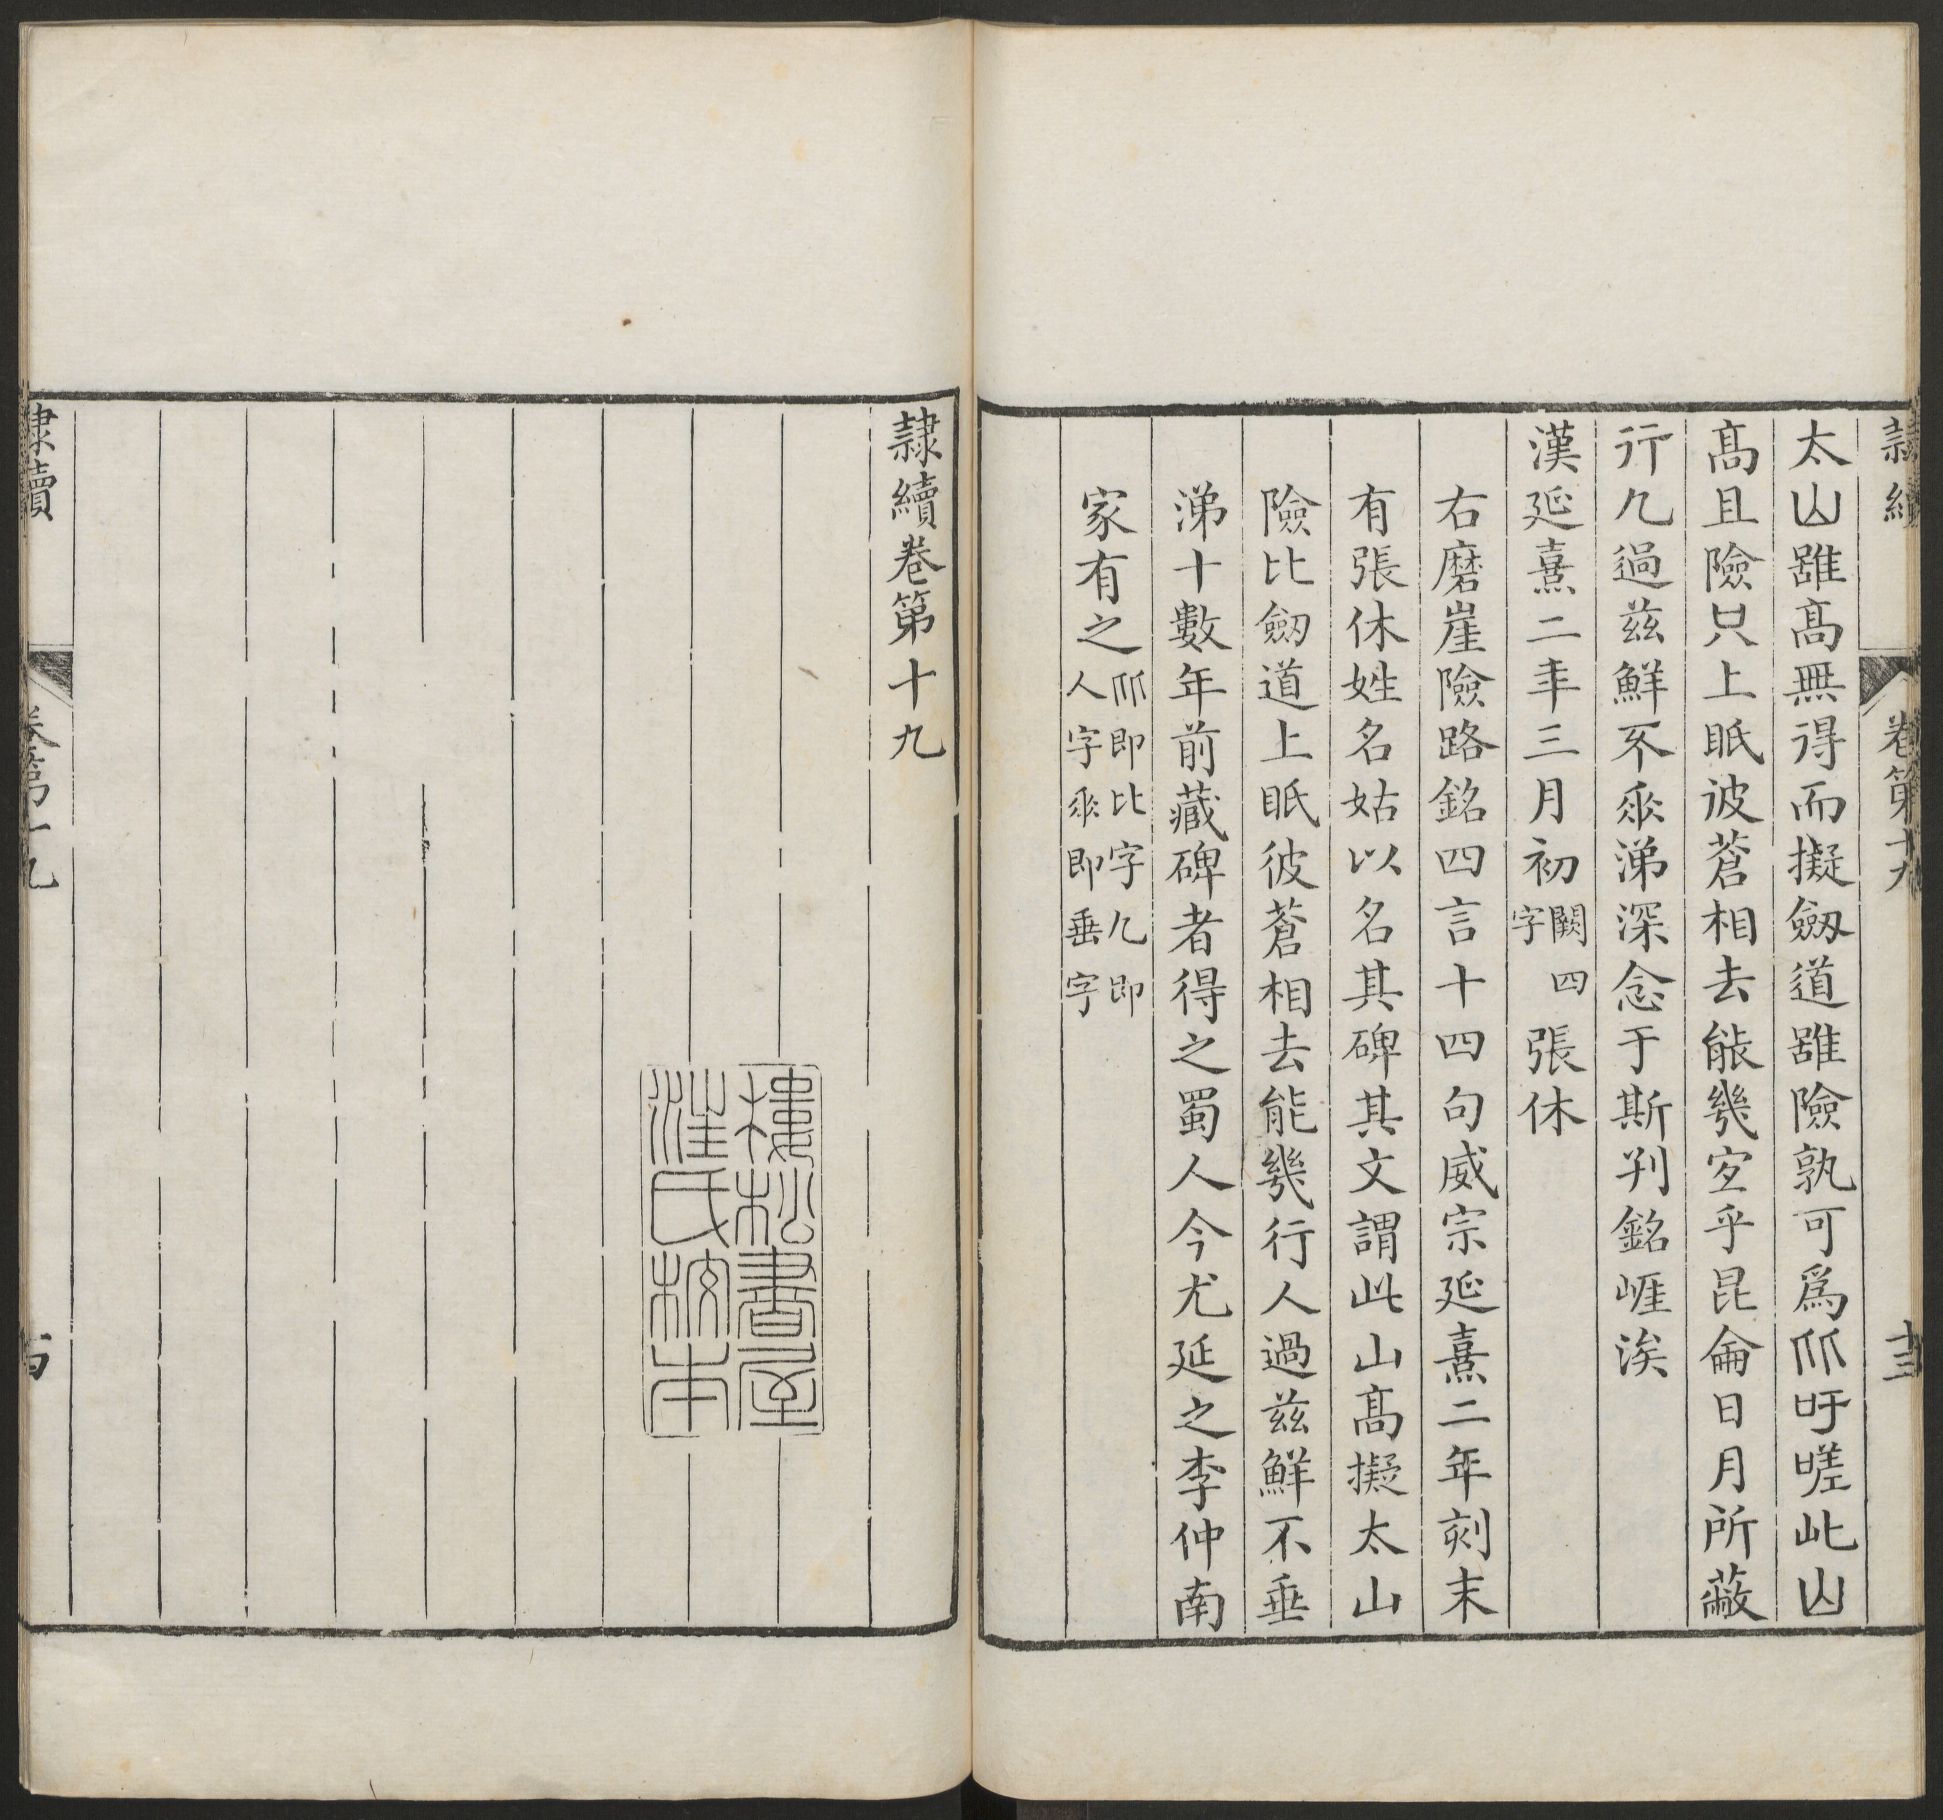 隸續 卷第十九 十三
太山雖高無得而擬劒道雖險孰可爲㸪吁嗟此山
高且險只上眂彼蒼相去能幾宐乎昆侖日月所蔽
行𠆢過兹鮮不𠂹涕深念于斯刋銘崕涘
漢延熹二年三月初闕四字張休
右磨崖險路銘四言十四句威宗延熹二年刻末
有張休姓名姑以名其碑其文謂此山高擬太山
險比劒道上眂彼蒼相去能幾行人過兹鮮不垂
涕十數年前藏碑者得之蜀人今尤延之李仲南
家有之㸪即比字𠆢即
人字𠂹即垂字
隸續卷第十九
樓松書屋
汪氏校本
隸續 卷第十九 十四